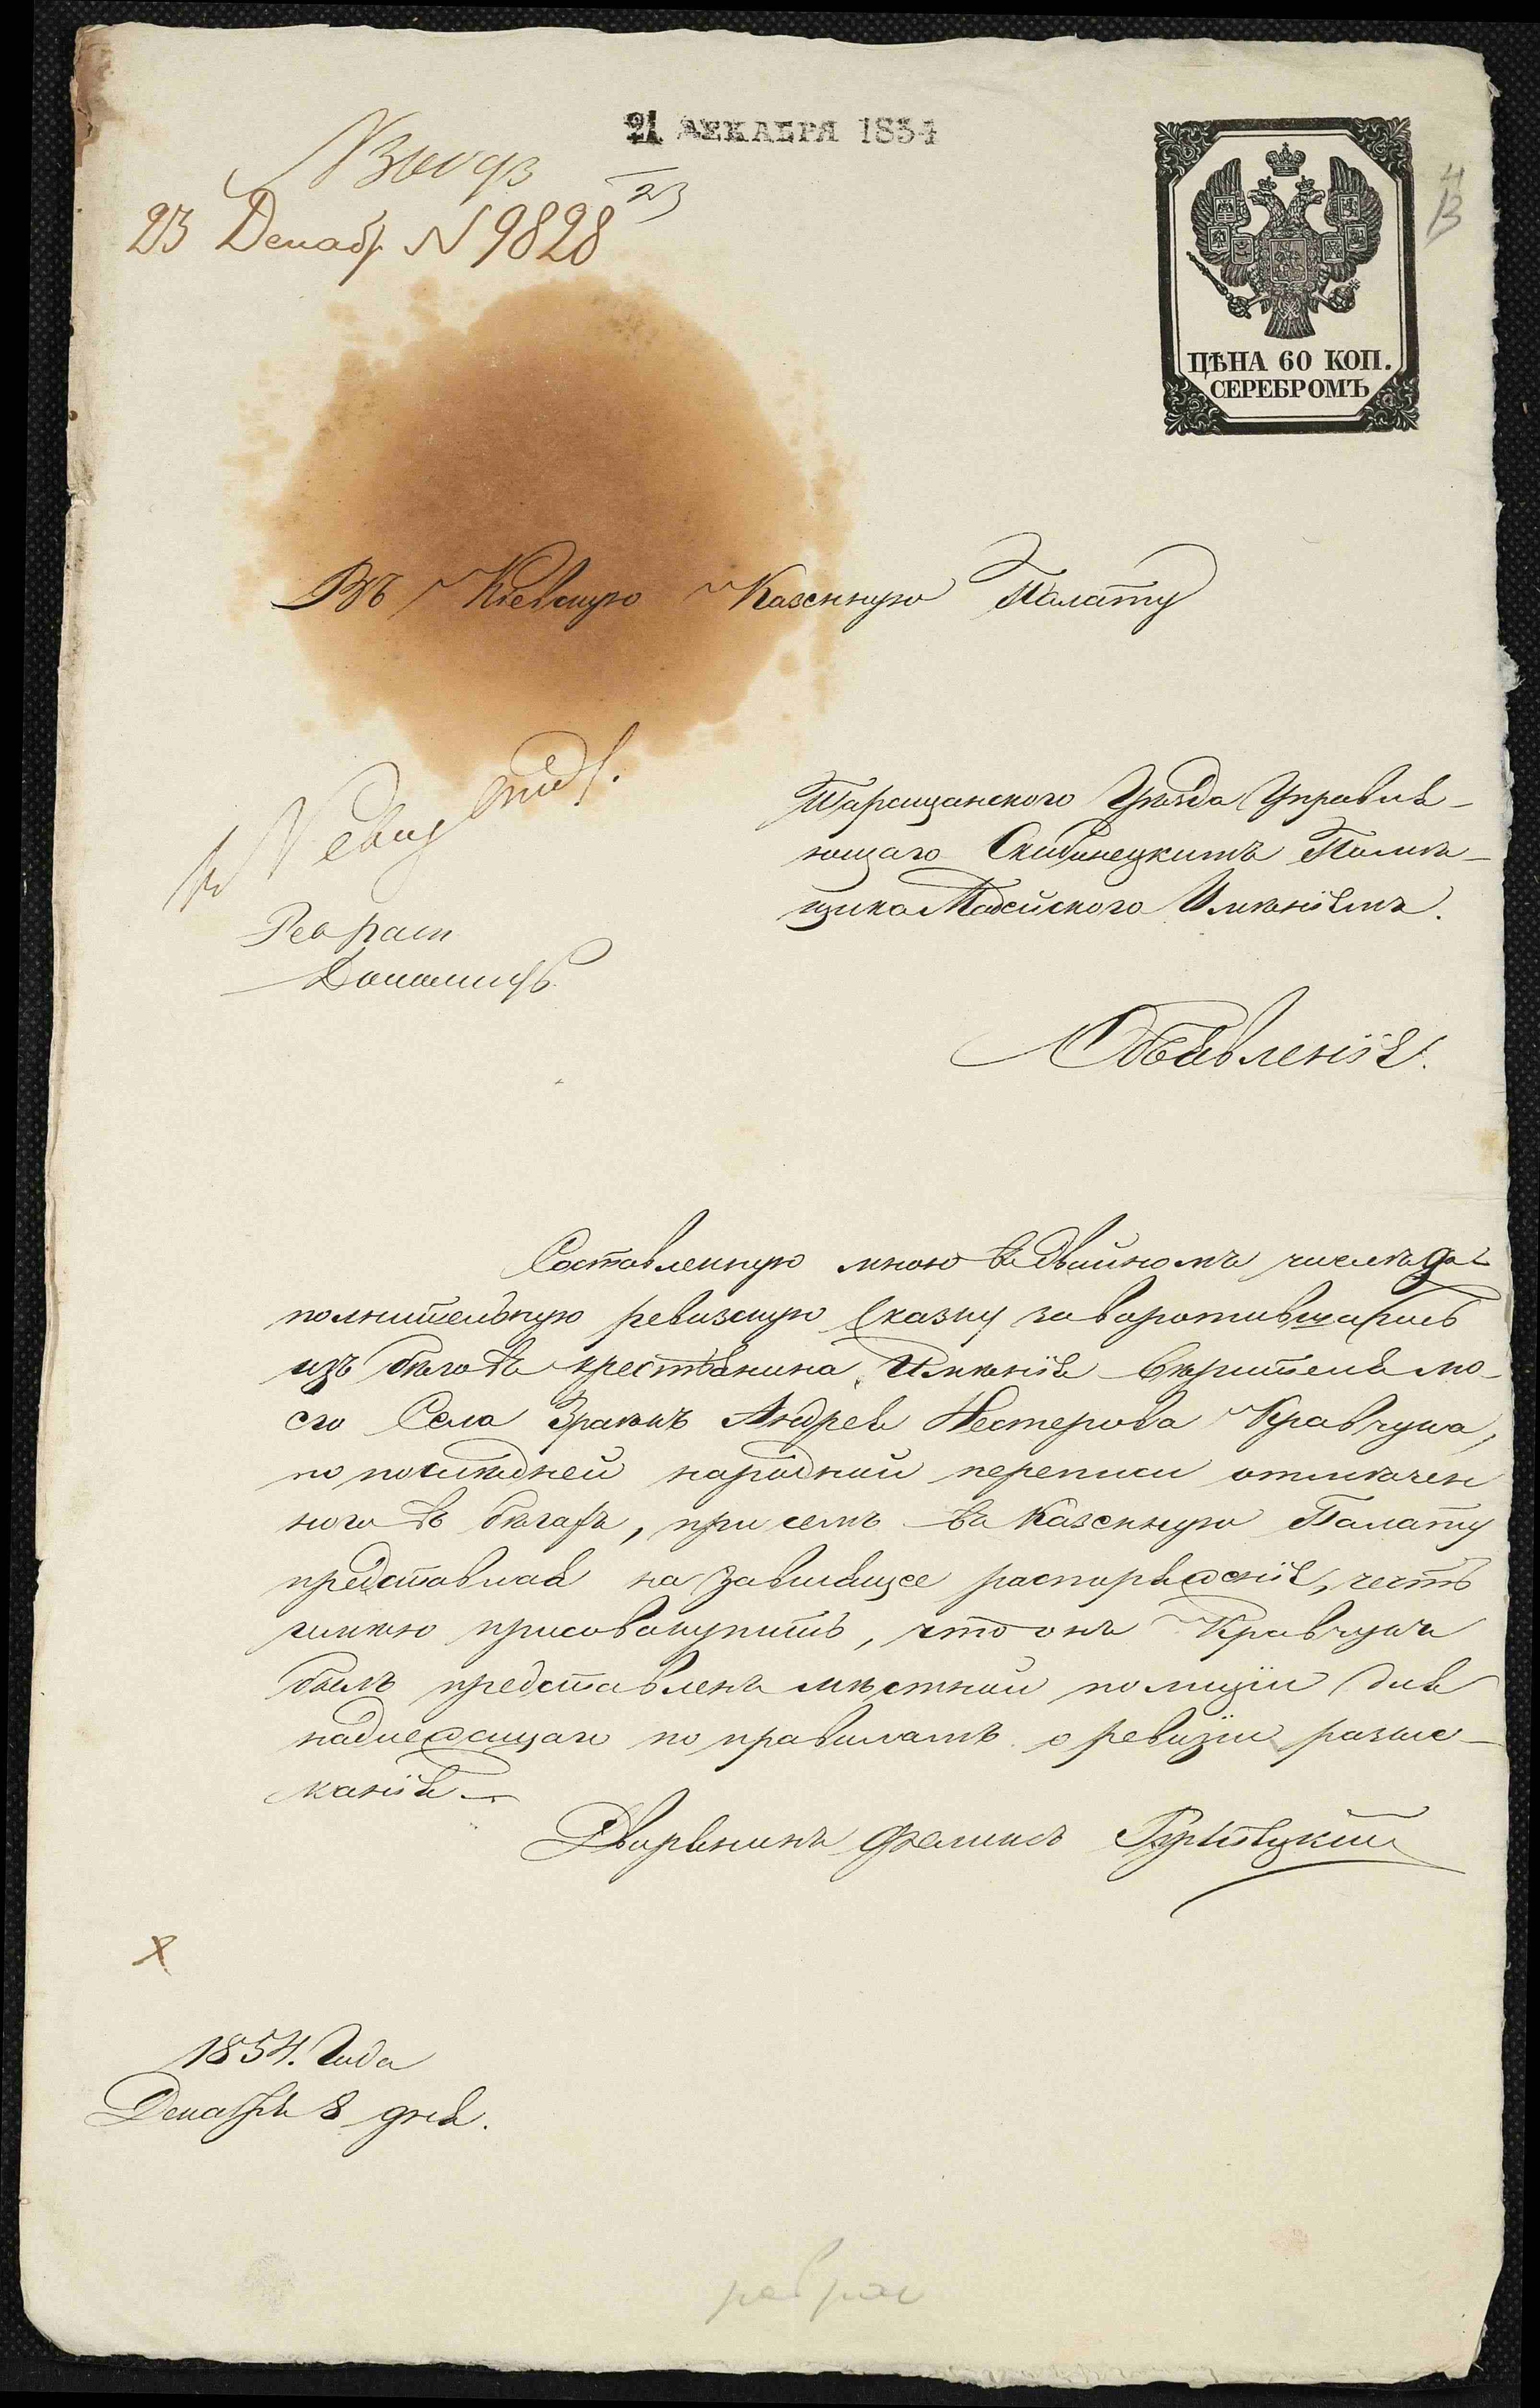 21 ДЕКАБРЯ 1854
23
23 Декабр N 9828
ЦѢНА 60 КОП.
СЕРЕБРОМЪ
Въ Кіевскую Казенную Палату
Таращанского Уѣзда Управля-
ющаго Скибинецкимъ Помѣ-
щика Имѣніемъ.
Объявленіе.
Составленную мною въ двойномъ числѣ до-
полнительную ревизскую Сказку за воротившагось
изъ бѣговъ крестьянина Имѣнія вѣрителя мо-
его Села Андрея Нестерова Кравчука,
по послѣдней народной переписи отмѣчен
ного въ бѣгахъ, при семъ въ Казенную Палату
представляя на зависящее распоряженіе, честь
имѣю присовокупить, что онъ Кравчукъ
былъ представленъ мѣстной полиціи для
надлежащаго по правиламъ о ревизіи разыс-
канія
Дворянинъ Феликсъ
1854. Года
Декабря 8 дня.